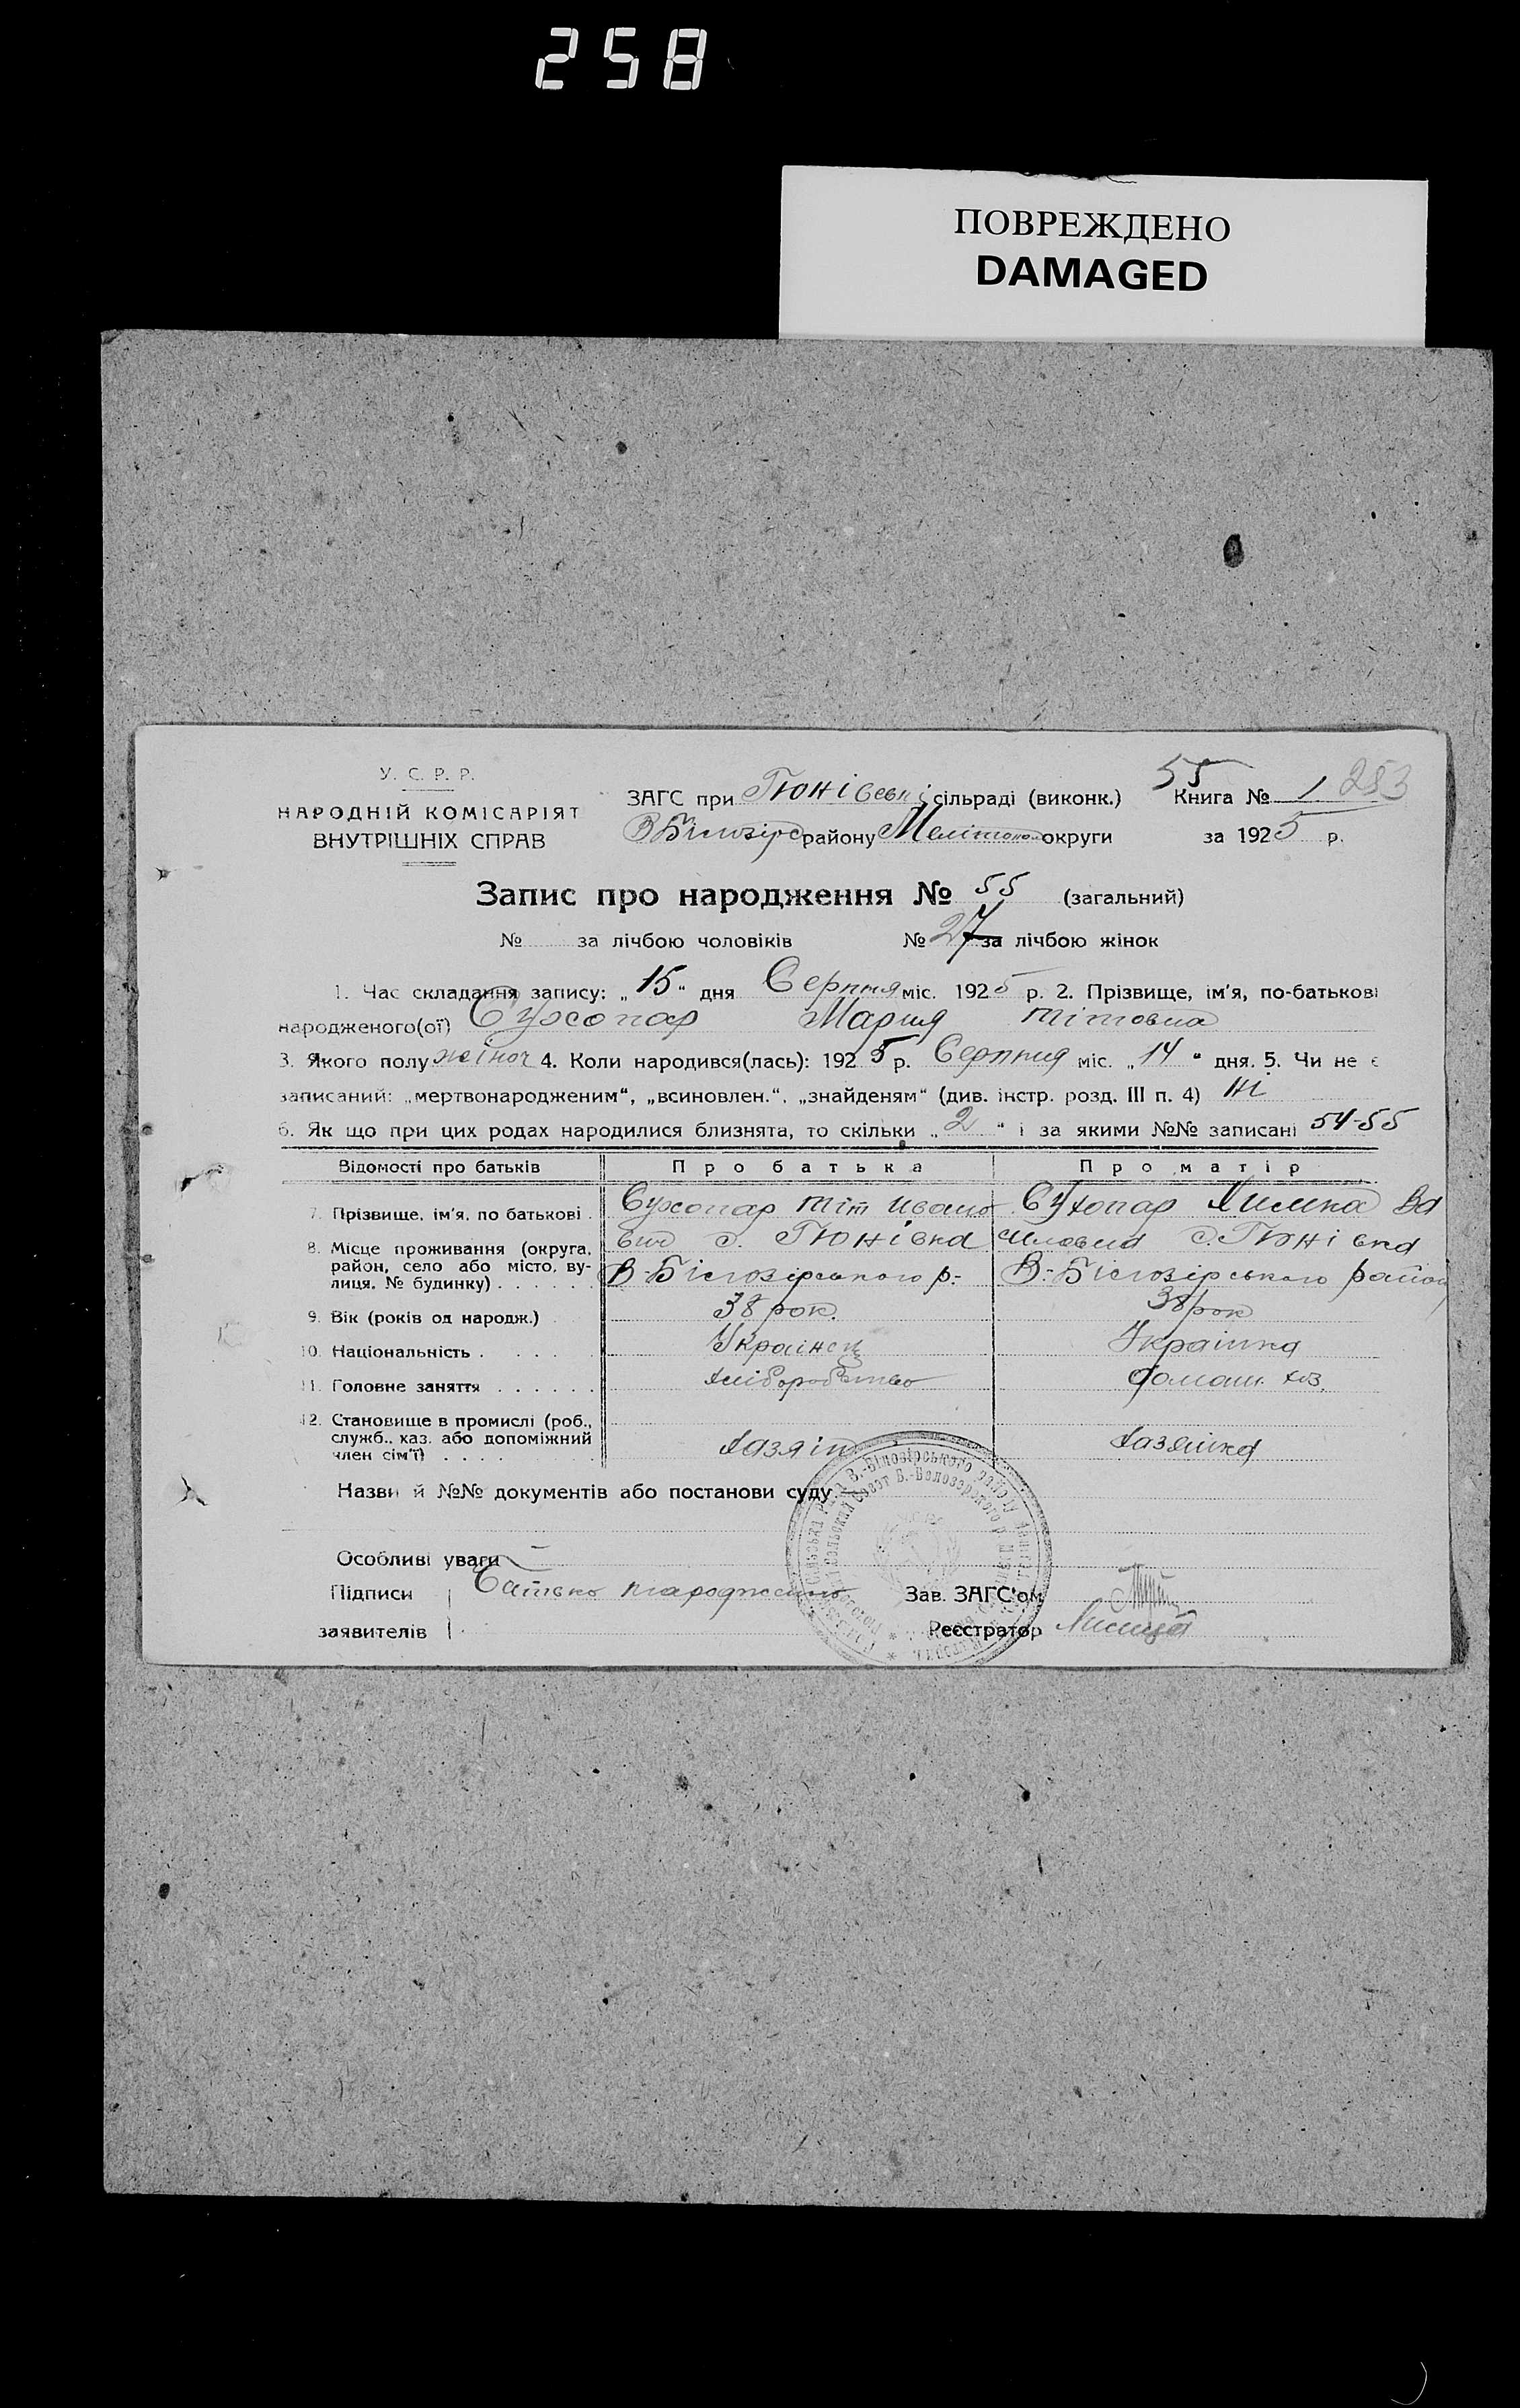 258
ПОВРЕЖДЕНО
DAMAGED
У. С. Р. Р.
НАРОДНІЙ КОМІСАРІЯТ
ВНУТРІШНІХ СПРАВ
55
253
ЗАГС при Гюнівськ. сільраді (виконк.) Книга № 1
В Білозірс району Мелітопол округи за 1925 р.
Запис про народження № 55 (загальний)
№ за лічбою чоловіків № 27 за лічбою жінок
1. Час складання запису: „15“ дня Серпня міс. 1925 р. 2. Прізвище, ім'я, по-батькові
народженого(ої) Сухопар Мария Тітовна
3. Якого полу жіноч 4. Коли народився(лась): 1925 р. Серпня міс. „14“ дня. 5. Чи не є
записаний: „мертвонародженим“, „всиновлен.“, „знайденям“ (див. інстр. розд. III п. 4) Ні
6. Як що при цих родах народилися близнята, то скільки „2“ і за якими №№ записані 54-55
Відомості про батьків Про батька Про матір
7. Прізвище, ім'я, по батькові Сухопар Тіт Ивано Сухопар Химка Ва
8. Місце проживання (округа, район, село або місто, вулиця, № будинку) вич с. Гюнівка силовна с. Гюнівка
В-Білозірського р.- В.-Білозірського район
9. Вік (років од народж.) 38 рок. 38 рок
10. Національність Українец Українка
11. Головне заняття хліборобство домаш. хоз.
12. Становище в промислі (роб., служб., хаз. або допоміжний член сім'ї) Хазяін Хазяйка
Назви й №№ документів або постанови суду —
Особливі уваги —
Підписи Батько народженої Зав. ЗАГС'ом
заявителів Реєстратор